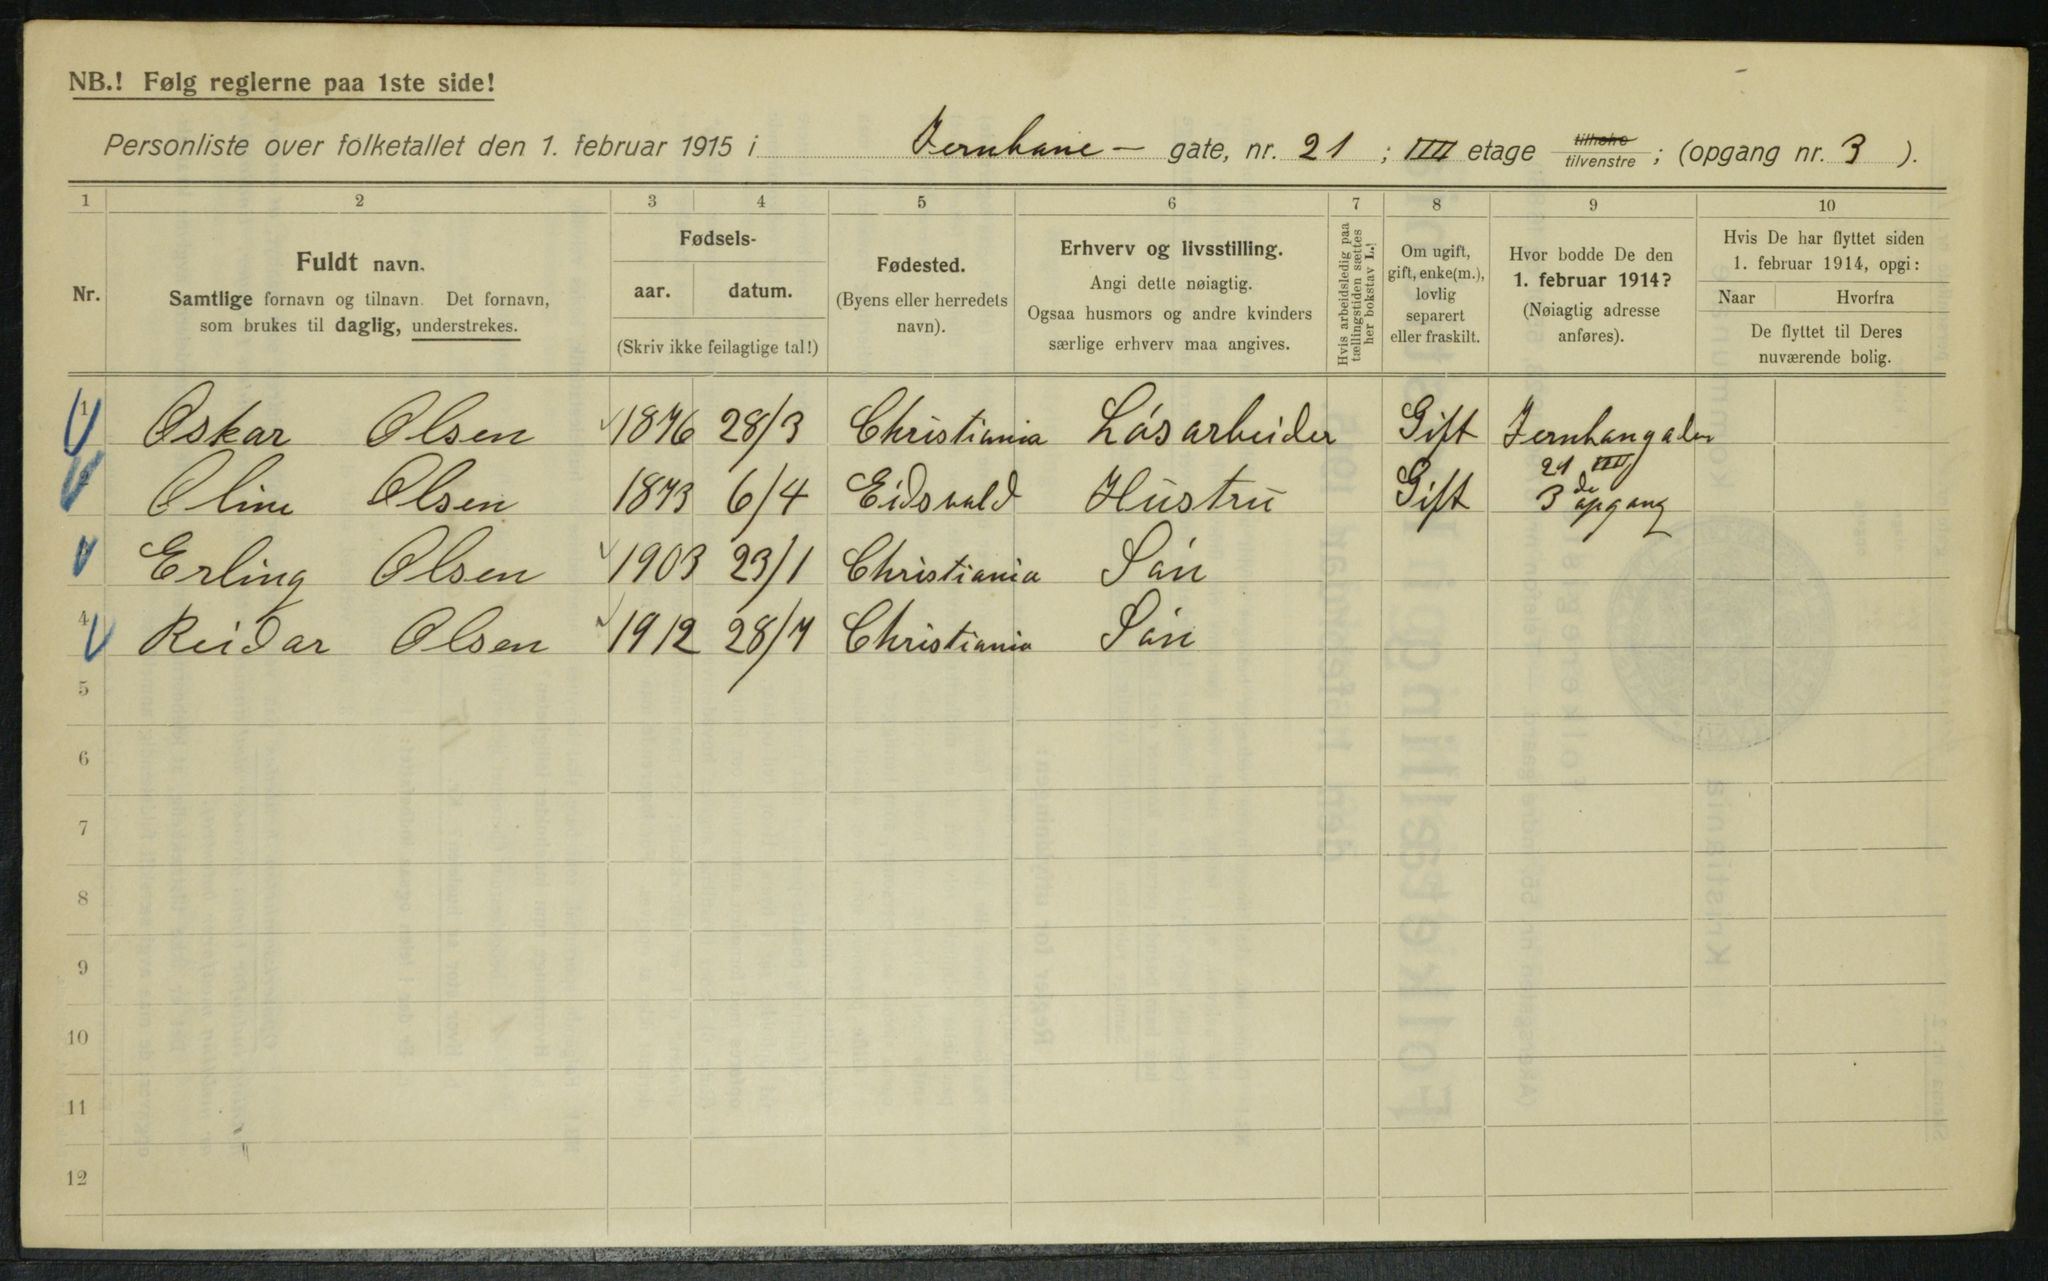 NB.! Følg reglerne paa 1ste side!
Personliste over folketallet den 1. februar 1915 i Jernbane- gate, nr. 21 ; IIII etage tilhøire tilvenstre ; (opgang nr. 3 ).
1 2 3 4 5 6 7 8 9 10
Nr.
Fuldt navn.
Samtlige fornavn og tilnavn. Det fornavn,
som brukes til daglig, understrekes.
Fødsels-
aar. datum.
(Skriv ikke feilagtige tal!)
Fødested.
(Byens eller herredets
navn).
Erhverv og livsstilling.
Angi dette nøiagtig.
Ogsaa husmors og andre kvinders
særlige erhverv maa angives.
Hvis arbeidsledig paa
tællingstiden sættes
her bokstav L.!
Om ugift,
gift, enke(m.),
lovlig
separert
eller fraskilt.
Hvor bodde De den
1. februar 1914?
(Nøiagtig adresse
anføres).
Hvis De har flyttet siden
1. februar 1914, opgi:
Naar Hvorfra
De flyttet til Deres
nuværende bolig.
1 Oskar Olsen 1876 28/3 Christiania Lósarbeider Gift Jernbangaden
21 IIII
2 Oline Olsen 1873 6/4 Eidsvald Hustru Gift 3de opgang
Erling Olsen 1903 23/1 Christiania Són
4 Reidar Olsen 1912 28/7 Christiania Són
5
6
7
8
9
10
11
12